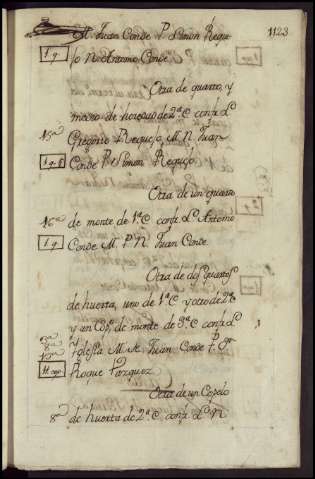 1123
M. Juan Conde P. Simon Reque
1 q. jo N. Antonio Conde
Otra de quarto, y
medio de de 2ª C confª Lº
15ª Gregorio Requejo, M. N. Juan
1 q. Conde P. Simon Requejo
Otra de un quarto
16ª de monte de 1ª C confª Lº Antonio
1 q. Conde M. P. N. Juan Conde
Otra de dos quartos
de huerta, uno de 1ª C y otro de 2ª C
y un Copº de monte de 3ª C confª Lº
Iglesia M. Juan Conde P.
Roque Vazquez
Otra de un Copelo
8ª de huerta de 2ª C confª Lº N